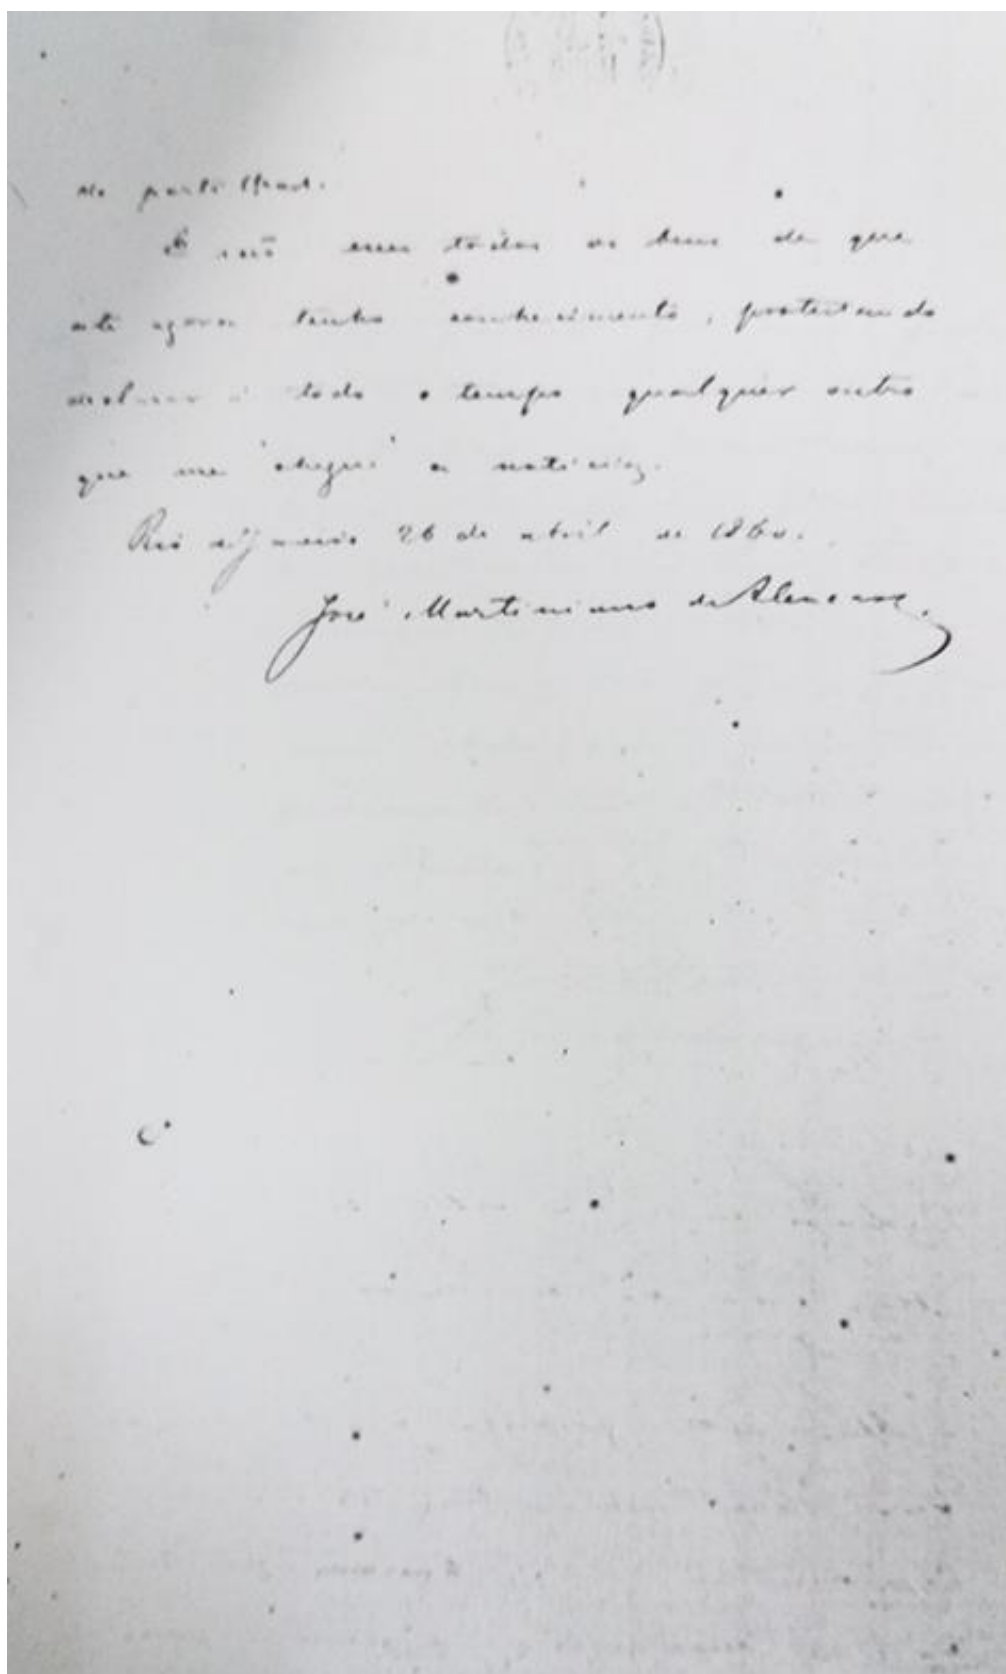 de partilhas.
E são esses todos os bens de que
até agora tenho conhecimento, protestando
declarar a todo o tempo qualquer outro
que me chegue a noticia.
Rio de Janeiro 26 de abril de 1860.
José Martiniano de Alencar.